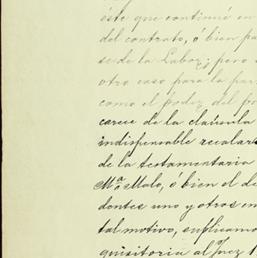 éste que continué en
del contrato, ó bien pa
se de la Labor; pero
otro caso para la par
como el poder del
carece de la claúsula
indispensable recalar
de la testamentaria
Mª Malo, ó bien el de
dontes uno y otros en
tal motivo, suplicamo
quisitoria al Juez 1